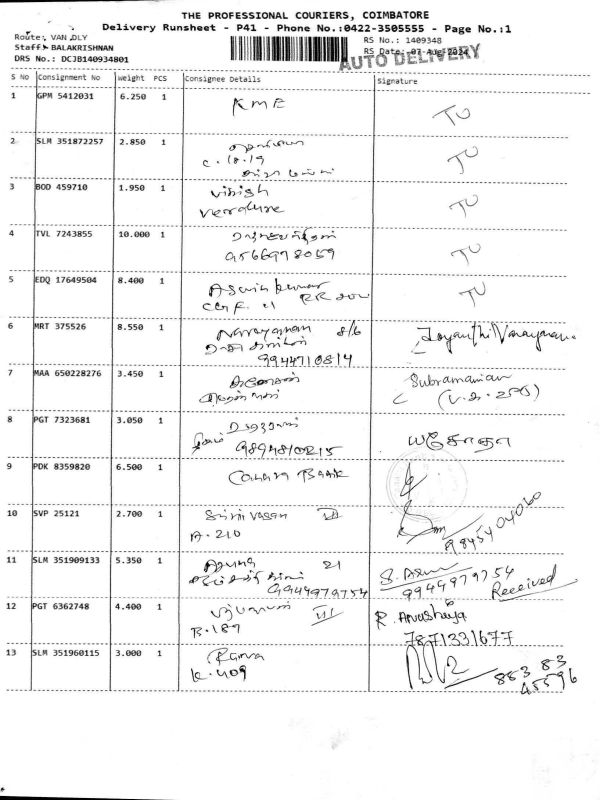 THE PROFESSIONAL COURIERS, COIMBATORE
Delivery Runsheet - P41 - Phone No.:0422-3505555 - Page No.:1
Route: VAN DLY
RS No.: 1409348
Staff: BALAKRISHNAN
RS Date: 07-Aug-2024
DRS No.: DCJB140934801
AUTO DELIVERY
S No Consignment No Weight PCS Consignee Details Signature
1 GPM 5412031 6.250 1 KME TU
2 SLM 351872257 2.850 1 TU
C.18.19
3 BOD 459710 1.950 1 TU
Verdure
4 TVL 7243855 10.000 1 TU
9566978059
5 EDQ 17649504 8.400 1 Aswin kumar TU
6 MRT 375526 8.550 1 Narayanan 8/6 Jayanthi Narayanan
9944710814
7 MAA 650228276 3.450 1 Subramanian
8 PGT 7323681 3.050 1 யசோதா
9894810215
9 PDK 8359820 6.500 1 Canara Bank
10 SVP 25121 2.700 1 Srinivasan III
A.210
11 SLM 351909133 5.350 1 Aruna 21
9944979754 9944979754 Received
12 PGT 6362748 4.400 1 III
B.189 7871331677
13 SLM 351960115 3.000 1
K.409